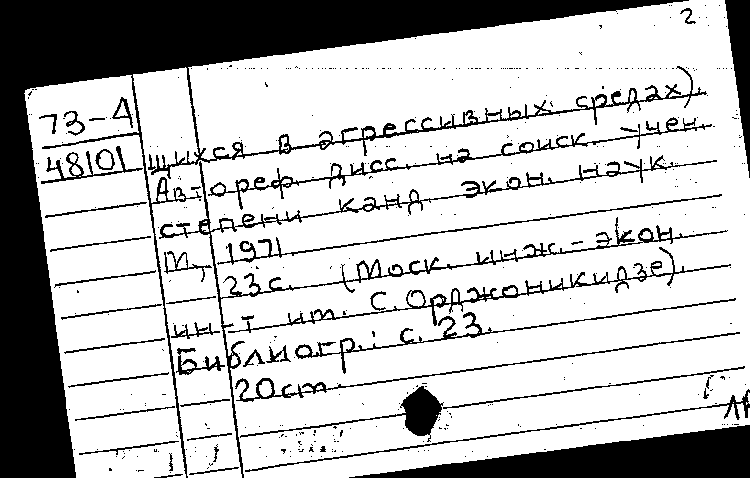 2
73-4
48101
щихся в агрессивных средах).
Автореф. дисс. на соиск. учен.
степени канд. экон. наук.
М., 1971.
23с. (Моск. инж.-экон.
ин-т им. С. Орджоникидзе).
Библиогр.: с. 23.
20см.